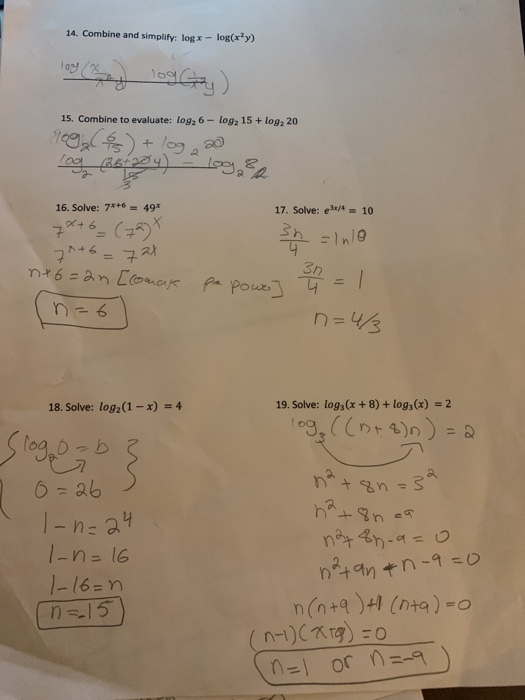 14. Combine and simplify: log x − log(x²y)
log(x/x²y) log(1/xy)
15. Combine to evaluate: log₂ 6 − log₂ 15 + log₂ 20
log₂(6/15) + log₂ 20
16. Solve: 7ˣ⁺⁶ = 49ˣ
7ˣ⁺⁶ = (7²)ˣ
7ⁿ⁺⁶ = 7²ˣ
n+6 = 2n [
power]
n = 6
17. Solve: e³ˣ/⁴ = 10
3n/4 = ln10
3n/4 = 1
n = 4/3
18. Solve: log₂(1 − x) = 4
0 = 2b
1-n = 2⁴
1-n = 16
1-16 = n
n=-15
19. Solve: log₃(x + 8) + log₃(x) = 2
log₃((n+8)n) = 2
n² + 8n = 3²
n² + 8n = 9
n² + 8n - 9 = 0
n² + 9n + n - 9 = 0
n(n+9) +1 (n+9) = 0
(n-1)(x+9) = 0
n=1 or n=-9